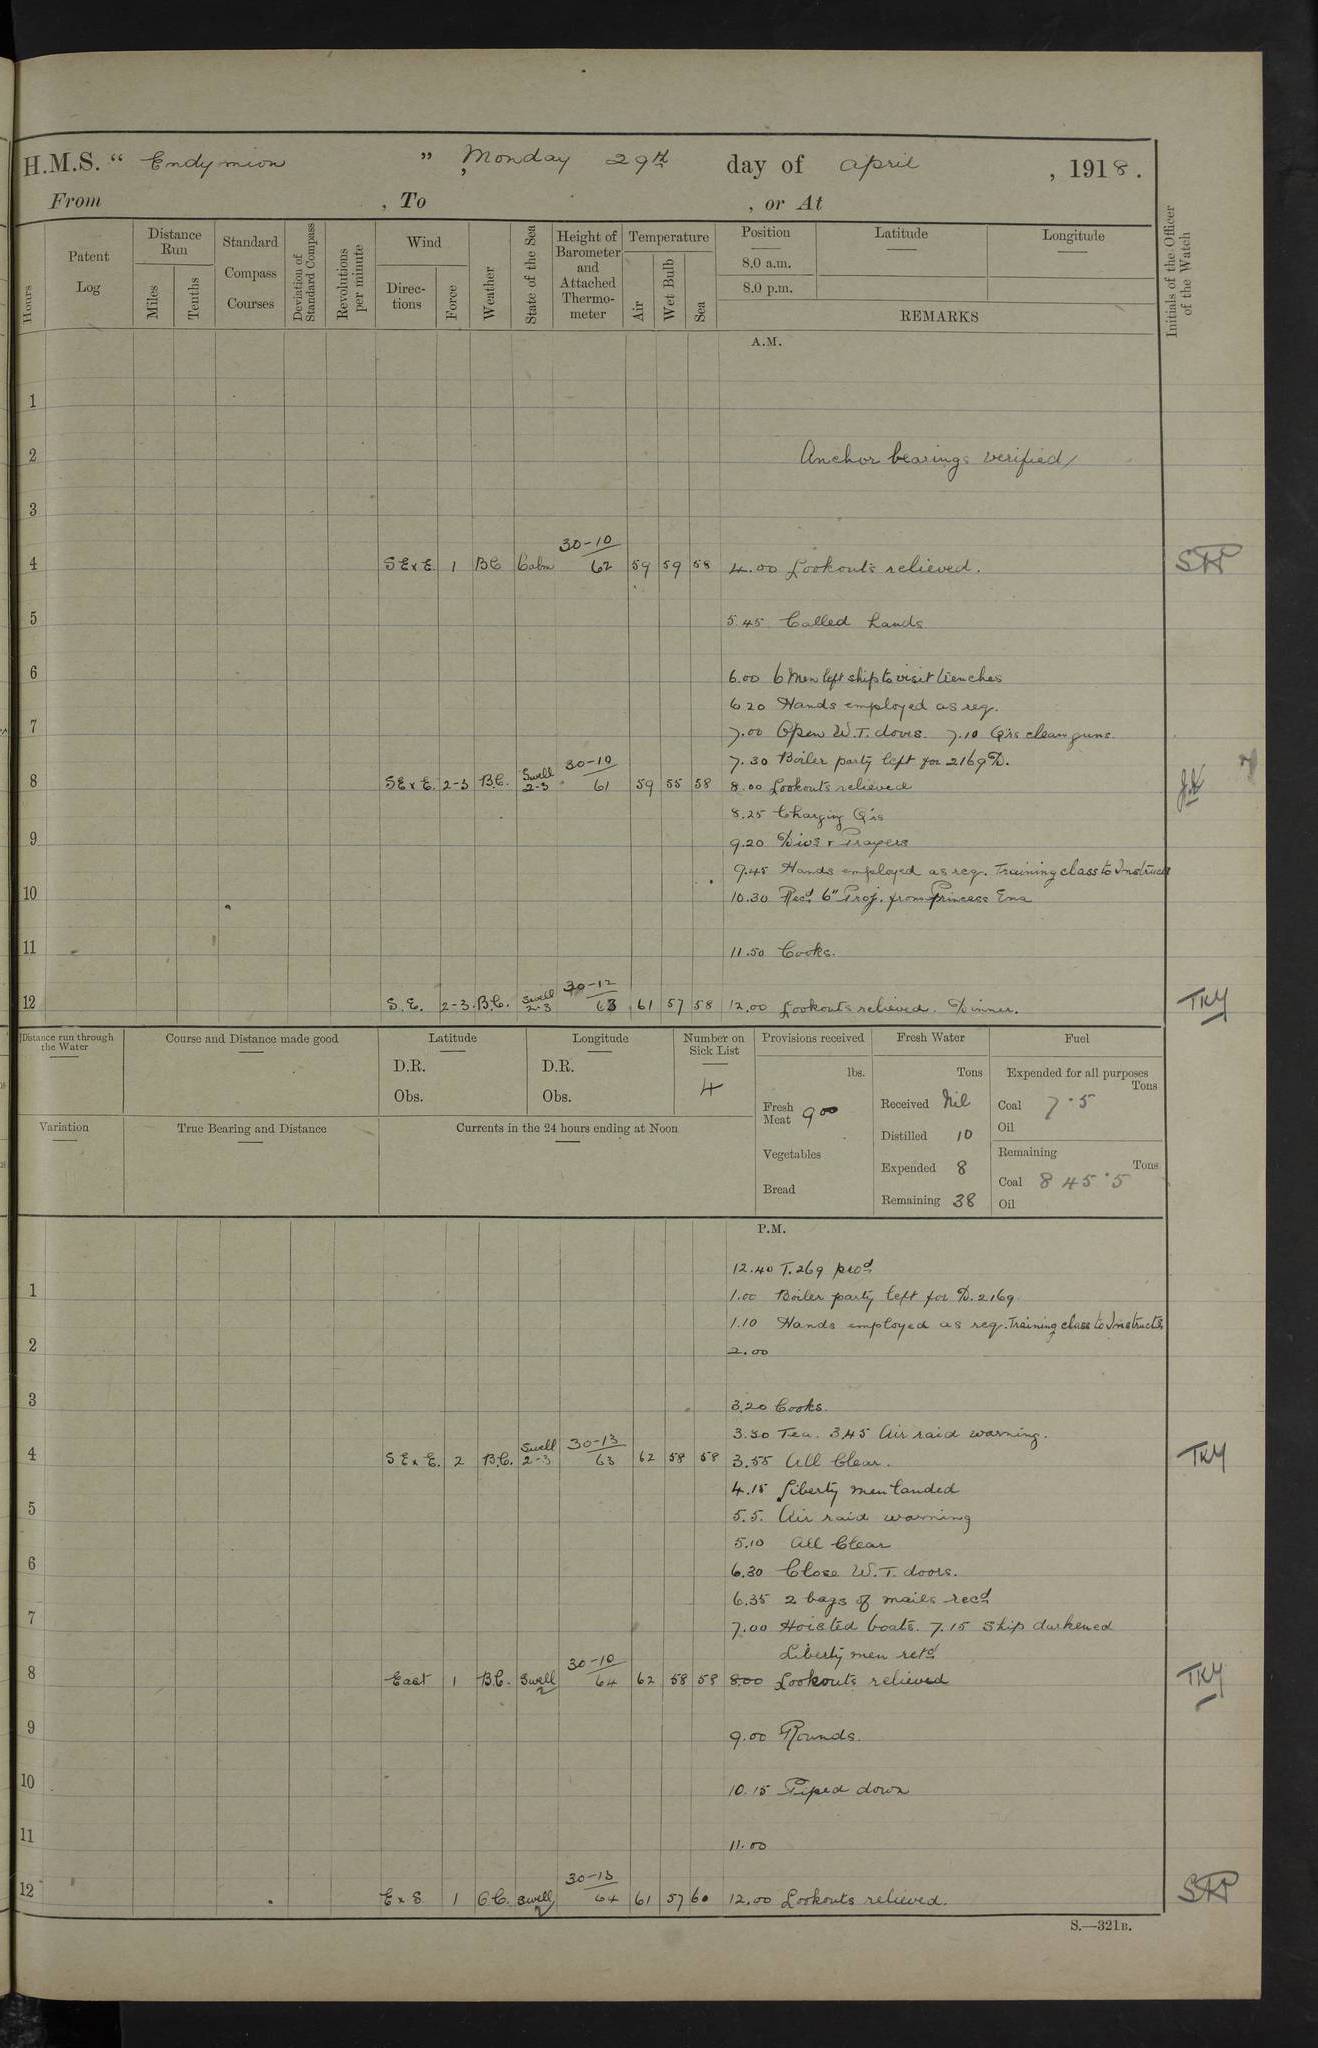 H.M.S. “ Endymion ”, Monday 29th day of April, 1918.
From , To , or At
Hours
Patent Log
Distance Run
Miles
Tenths
Standard Compass Courses
Deviation of Standard Compass
Revolutions per minute
Wind
Direc- tions
Force
Weather
State of the Sea
Height of Barometer and Attached Thermo- meter
Temperature
Air
Wet Bulb
Sea
Position
8.0 a.m.
8.0 p.m.
Latitude
Longitude
REMARKS
Initials of the Officer of the Watch
A.M.
1
2 Anchor bearings verified
3
4 SExE. 1 BC Calm 30-10/62 59 59 58 4.00 Lookouts relieved.
5 5.45 Called hands
6 6.00 6 Men left ship to visit trenches
6 20 Hands employed as req.
7 7.00 Open W.T. doors. 7.10 Qrs clean guns.
7.30 Boiler party left for 2169 D.
8 SExE. 2-3 B.C. Swell 2-3 30-10/61 59 55 58 8.00 Lookouts relieved
8.25 Charging Qrs
9 9.20 Divs & Prayers
9.45 Hands employed as req. Training class to Instruct
10 10.30 Recd. 6" Proj. from Princess Ena
11 11.50 Cooks.
12 S.E. 2-3 B.C. Swell 2-3 30-12/63 61 57 58 12.00 Lookouts relieved. Dinner. TKY
Distance run through the Water
Course and Distance made good
Latitude
D.R.
Obs.
Longitude
D.R.
Obs.
Number on Sick List
4
Provisions received
lbs.
Fresh Meat 900
Vegetables
Bread
Fresh Water
Tons
Received Nil
Distilled 10
Expended 8
Remaining 38
Fuel
Expended for all purposes
Tons
Coal 7.5
Oil
Remaining
Tons
Coal 845.5
Oil
Variation
True Bearing and Distance
Currents in the 24 hours ending at Noon
P.M.
12.40 T.269 procd
1 1.00 Boiler party left for D.2169
1.10 Hands employed as req. Training class to Instructn
2 2.00
3 3.20 Cooks.
3.30 Tea. 3.45 Air raid warning.
4 SExE. 2 B.C. Swell 2-3 30-13/63 62 58 58 3.55 All Clear. TKY
4.15 Liberty men landed
5 5.5. Air raid warning
5.10 All Clear
6 6.30 Close W.T. doors.
6.35 2 bags of mails recd
7 7.00 Hoisted boats. 7.15 Ship darkened
Liberty men retd
8 East 1 B.C. Swell 2 30-10/64 62 58 59 8.00 Lookouts relieved TKY
9 9.00 Rounds.
10 10.15 Piped down
11 11.00
12 ExS 1 B.C. Swell 2 30-13/64 61 57 60 12.00 Lookouts relieved.
S.—321B.